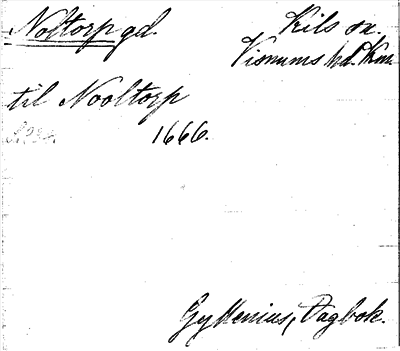 Noltorp gd.
Kils sn.
Visnums hd. Krm.
til Nooltorp
1666.
Gyllenius, Dagbok.